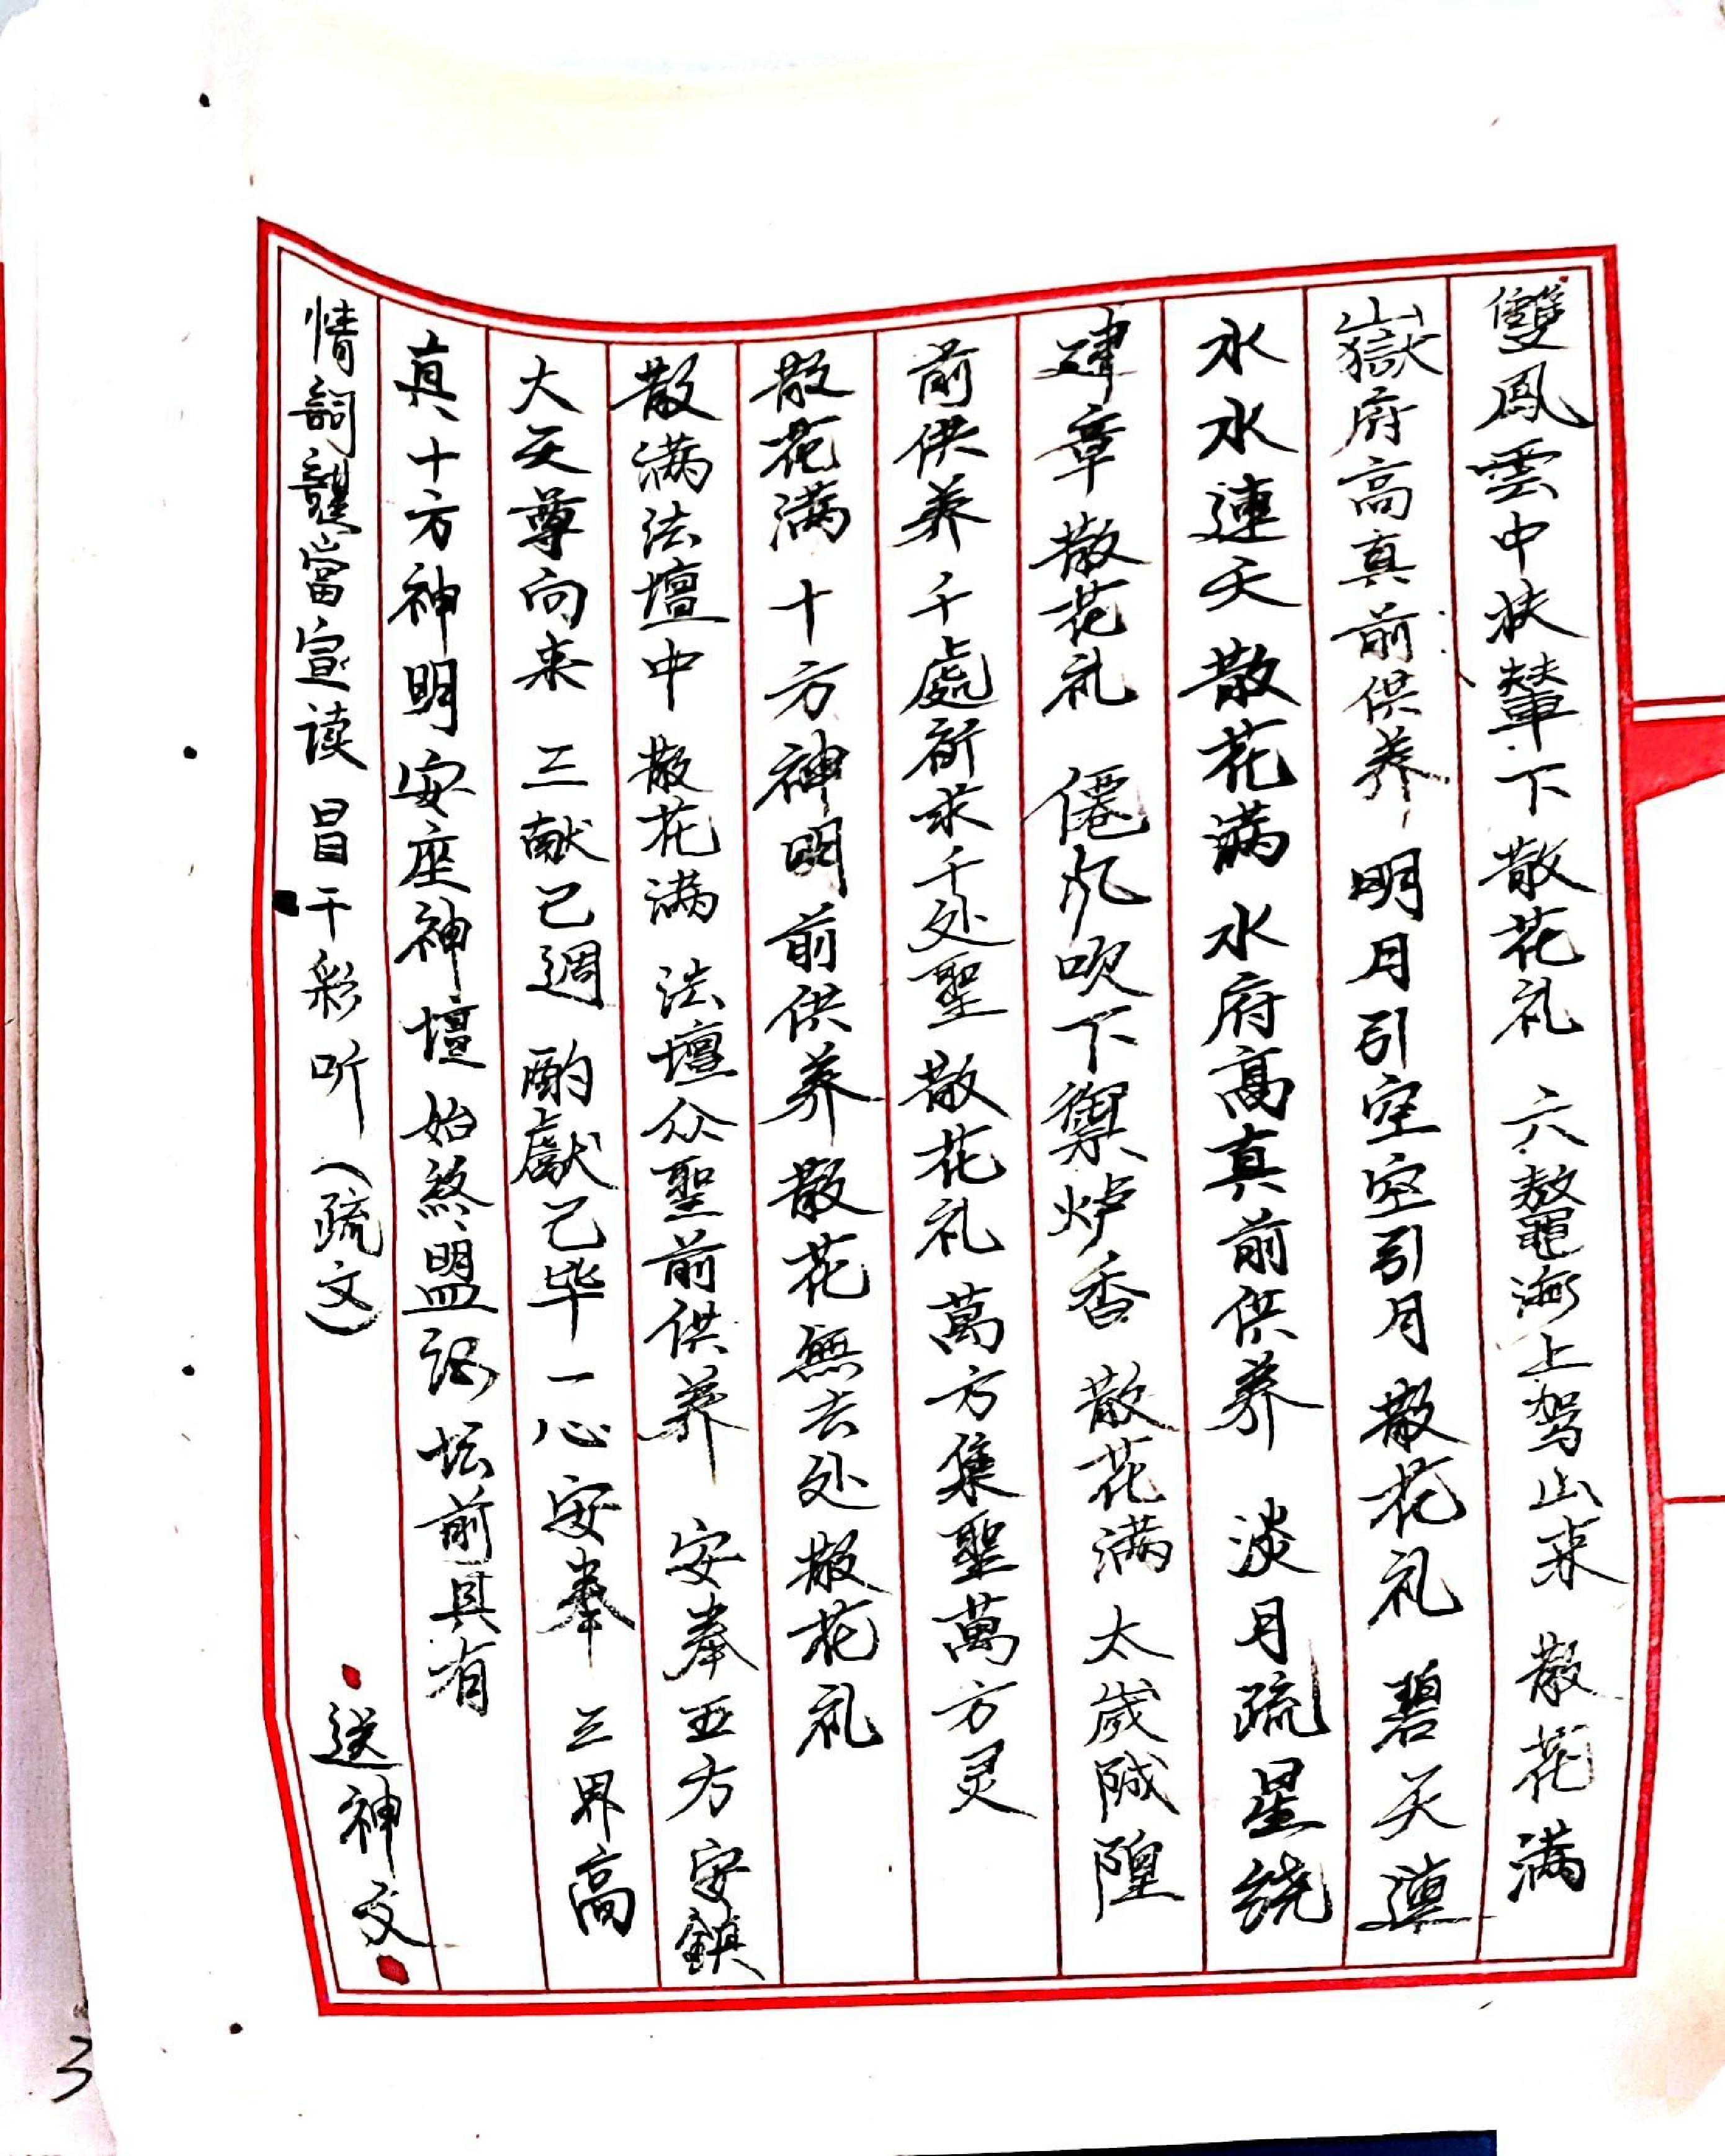 雙鳳雲中扶輦下散花礼 六鰲海上驾山来 散花满
嶽府高真前供养 明月引空空引月 散花礼 碧天連
水水連天 散花满 水府高真前供养 淡月疏星绕
建章 散花礼 僊凡吹下禦炉香 散花满 太歲陿隍
前供养 千處祈求千处聖 散花礼 萬方集聖萬方灵
散花满 十方神明前供养 散花無去处散花礼
散满法壇中 散花满 法壇众聖前供养 安奉五方安鎮
大天尊向来 三献已週 酌獻已毕 一心安奉 三界高
真十方神明安座神壇始 盟 坛前具有
情詞謹當宣读 冒干彩听（疏文）
送神文
3